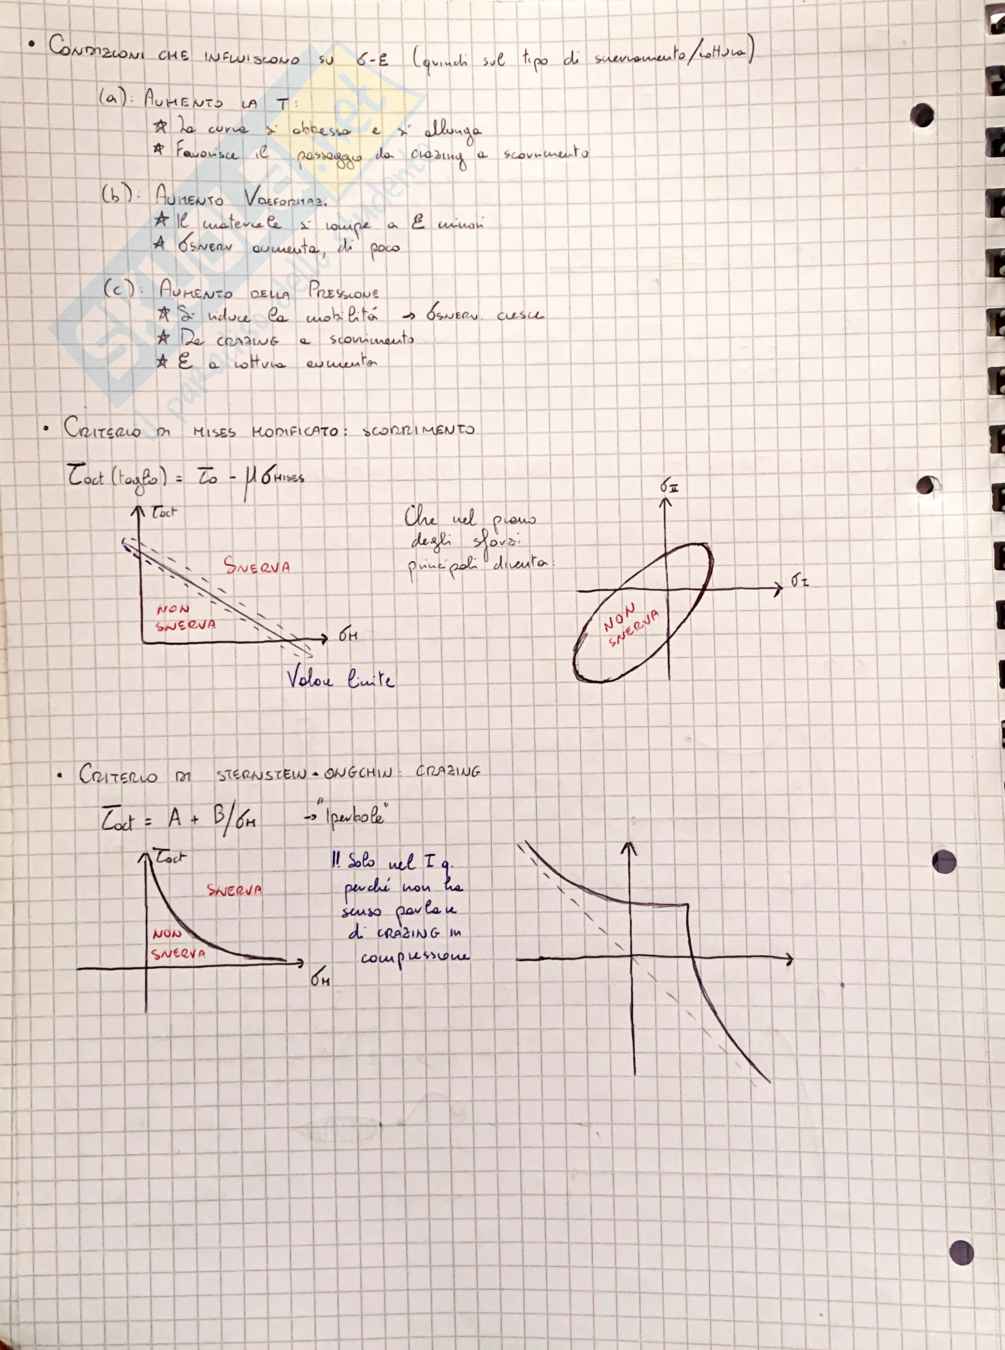 • CONDIZIONI CHE INFLUISCONO SU σ-ε (quindi sul tipo di snervamento/rottura)
(a): AUMENTO LA T:
★ La curva si abbassa e si allunga
★ Favorisce il passaggio da crazing a scorrimento
(b): AUMENTO VDEFORMAZ.
★ Il materiale si rompe a ε minori
★ σSNERV aumenta, di poco
(c): AUMENTO DELLA PRESSIONE
★ Si riduce la mobilitá → σSNERV cresce
★ Da CRAZING a scorrimento
★ ε a rottura aumenta
• CRITERIO DI MISES MODIFICATO: SCORRIMENTO
τoct (taglio) = τo - μ σMISES
τoct
SNERVA
NON
SNERVA
σM
Valore limite
Che nel piano
degli sforzi
principali diventa:
σII
σI
NON
SNERVA
• CRITERIO DI STERNSTEIN-ONGCHIN: CRAZING
τoct = A + B/σM → "Iperbole"
τoct
SNERVA
NON
SNERVA
σM
!! Solo nel I q.
perché non ha
senso parlare
di CRAZING in
compressione